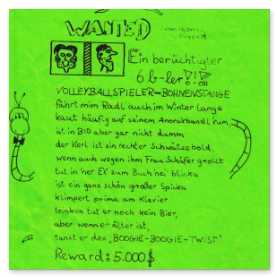 WANTED
Ein berüchtigter
6 b-ler!!!
VOLLEYBALLSPIELER-BOHNENSTANGE
fährt mim Radl auch im Winter lange
kaut häufig auf seinem Anorakbandl rum,
ist in BIO aber gar nicht dumm
der Kerl ist ein rechter Schwätzebold,
wenn auch wegen ihm Frau Schäfer grollt
tut in'ner EX zum Buch'nei blicka
ist ein ganz schön großer Spicka
klimpert prima am Klavier
trinken tut er noch kein Bier,
aber wenn er älter ist,
tanzt er den "BOOGIE-BOOGIE-TWIST"
Reward: 5.000$